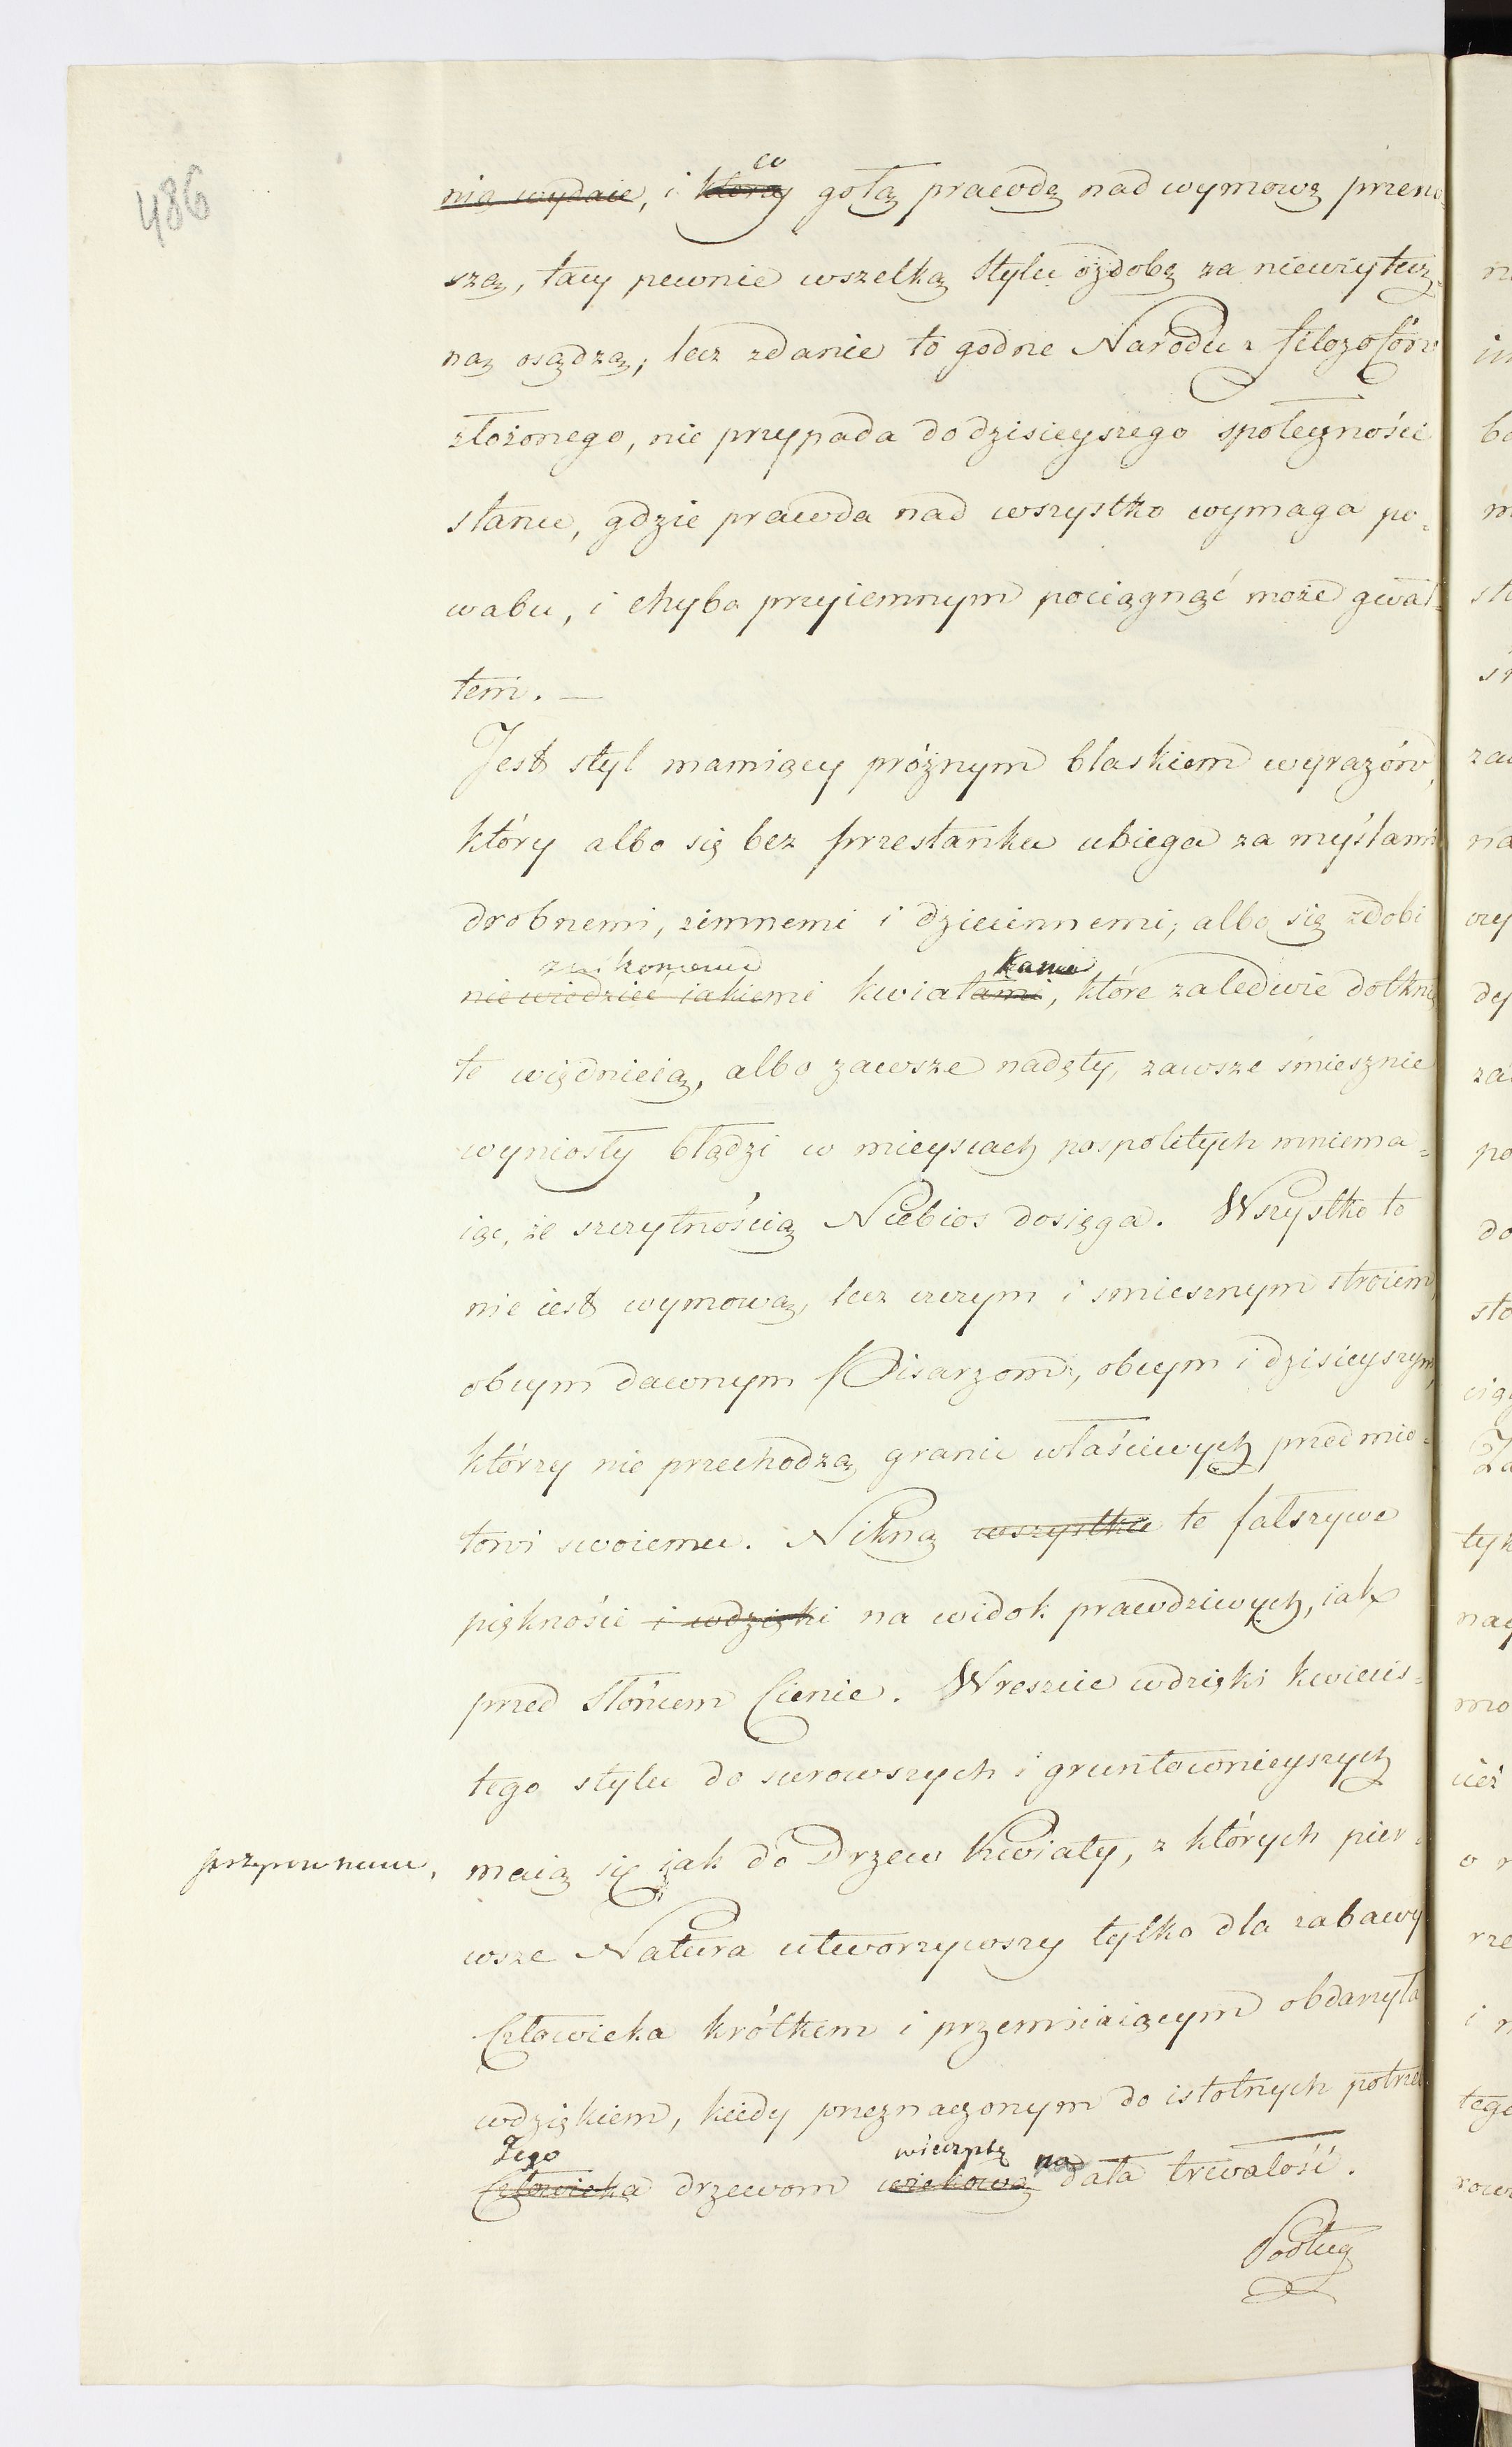 486
co
nią wydaie, i którzy gołą prawdę nad wymowę przeno-
szą, tacy pewnie wszelką stylu ozdobę za niewytecz-
ną osądzą; lecz zdanie to godne Narodu z filozofów
złożonego, nie przypada do dzisieyszego społeczności
stanu, gdzie prawda nad wszystko wymaga po-
wabu, i chyba przyiemnym pociągnąć może gwał-
tem. —
Jest styl mamiący próżnym blaskiem wyrazów,
który albo się bez przestanku ubiega za myślami
drobnemi, zimnemi i dziecinnemi; albo się zdobi
znikomemi kami
niewiedzieć iakiemi kwiatami, które zaledwie dotknię
te więdnieią, albo zawsze nadęty, zawsze śmiesznie
wyniosły błądzi w mieyscach pospolitych mniema-
iąc, że szczytnością Niebios dosięga. Wszystko to
nie iest wymową, lecz czczym i smiesznym stroiem,
obcym dawnym Pisarzom, obcym i dzisieyszym,
którzy nie przechodzą granic właściwych przedmio-
towi swoiemu. Nikną wszystkie te fałszywe
piękności i wdzięki na widok prawdziwych, iak
przed Słońcem Cienie. Wreszcie wdzięki kwiecis-
tego stylu do surowszych i gruntownieyszych
maią się iak do Drzew Kwiaty, z których pier-
wsze Natura utworzywszy tylko dla zabawy
Człowieka krótkem i przemiiaiącym obdarzyła
wdziękiem, kiedy przeznaczonym do istotnych potrzeb
Jego wieczystą na
Człowieka drzewom wiekową dała trwałość.
Podług